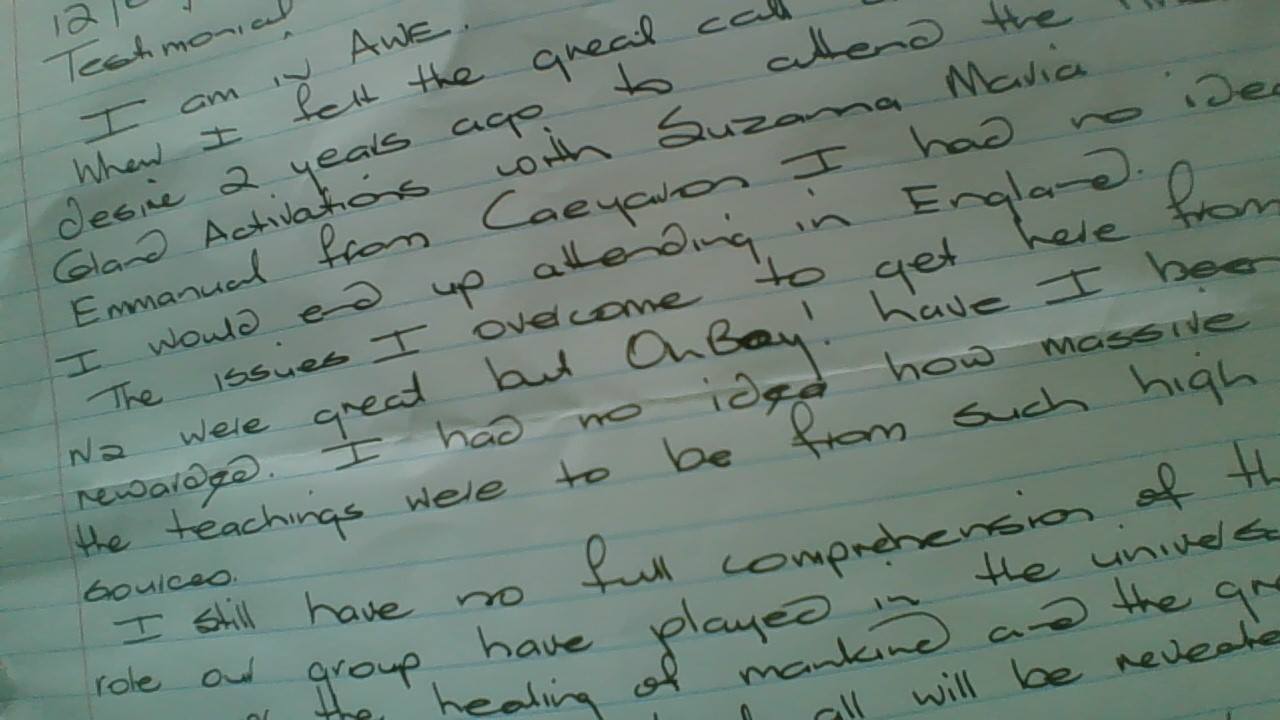 Testimonial
I am in AWE.
When I felt the great call
desire 2 years ago to attend the
Gland Activations with Suzanna Maria
Emmanual from Caeyavon I had no idea
I would end up attending in England.
The issues I overcome to get here from
NZ were great but Oh Boy! have I been
rewarded. I had no idea how massive
the teachings were to be from such high
sources.
I still have no full comprehension of
role our group have played in the universe
the healing of mankind and the
all will be revealed